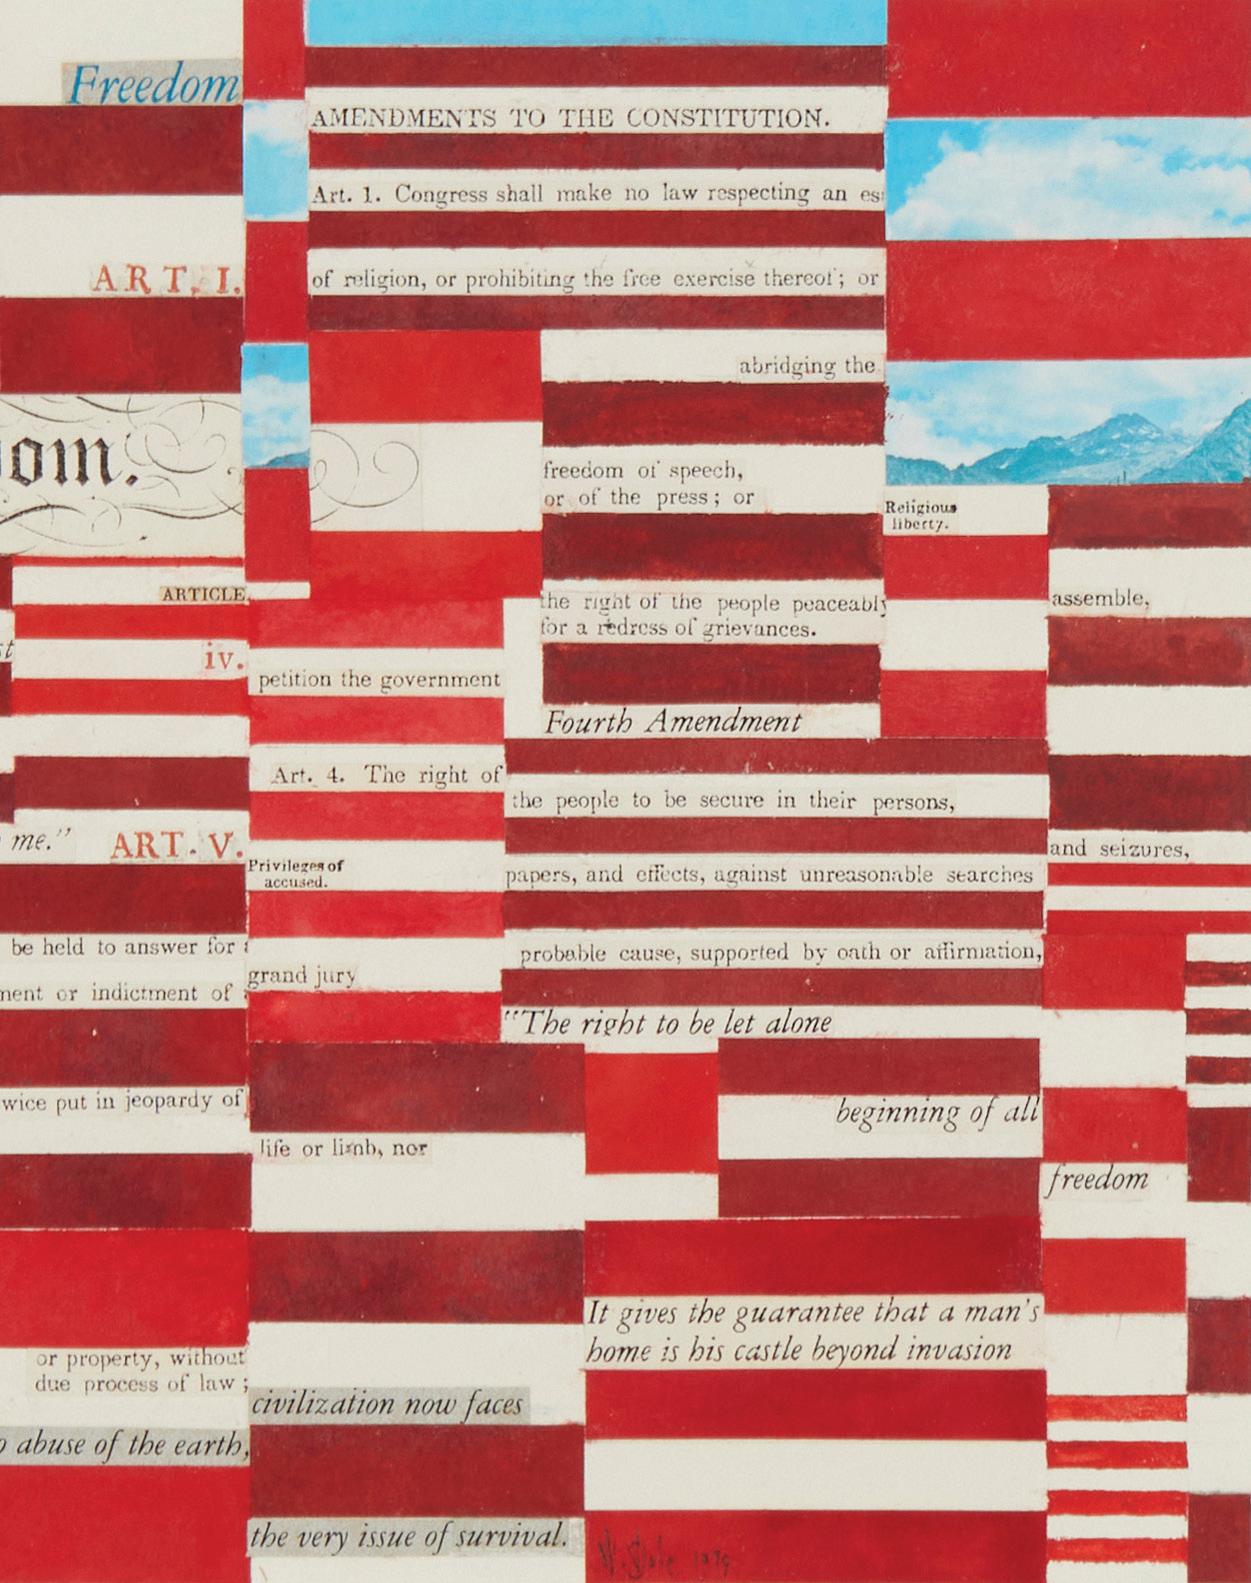 Freedom
AMENDMENTS TO THE CONSTITUTION.
Art. 1. Congress shall make no law respecting an es
ART. I.
of religion, or prohibiting the free exercise thereof; or
abridging the
om.
freedom of speech,
or of the press; or
Religious
liberty.
ARTICLE
the right of the people peaceably
assemble,
for a redress of grievances.
iv.
petition the government
Fourth Amendment
Art. 4. The right of
the people to be secure in their persons,
me."
ART. V.
and seizures,
Privileges of
accused.
papers, and effects, against unreasonable searches
be held to answer for
probable cause, supported by oath or affirmation,
grand jury
ment or indictment of
"The right to be let alone
wice put in jeopardy of
beginning of all
life or limb, nor
freedom
It gives the guarantee that a man's
home is his castle beyond invasion
or property, without
due process of law;
civilization now faces
abuse of the earth,
the very issue of survival.